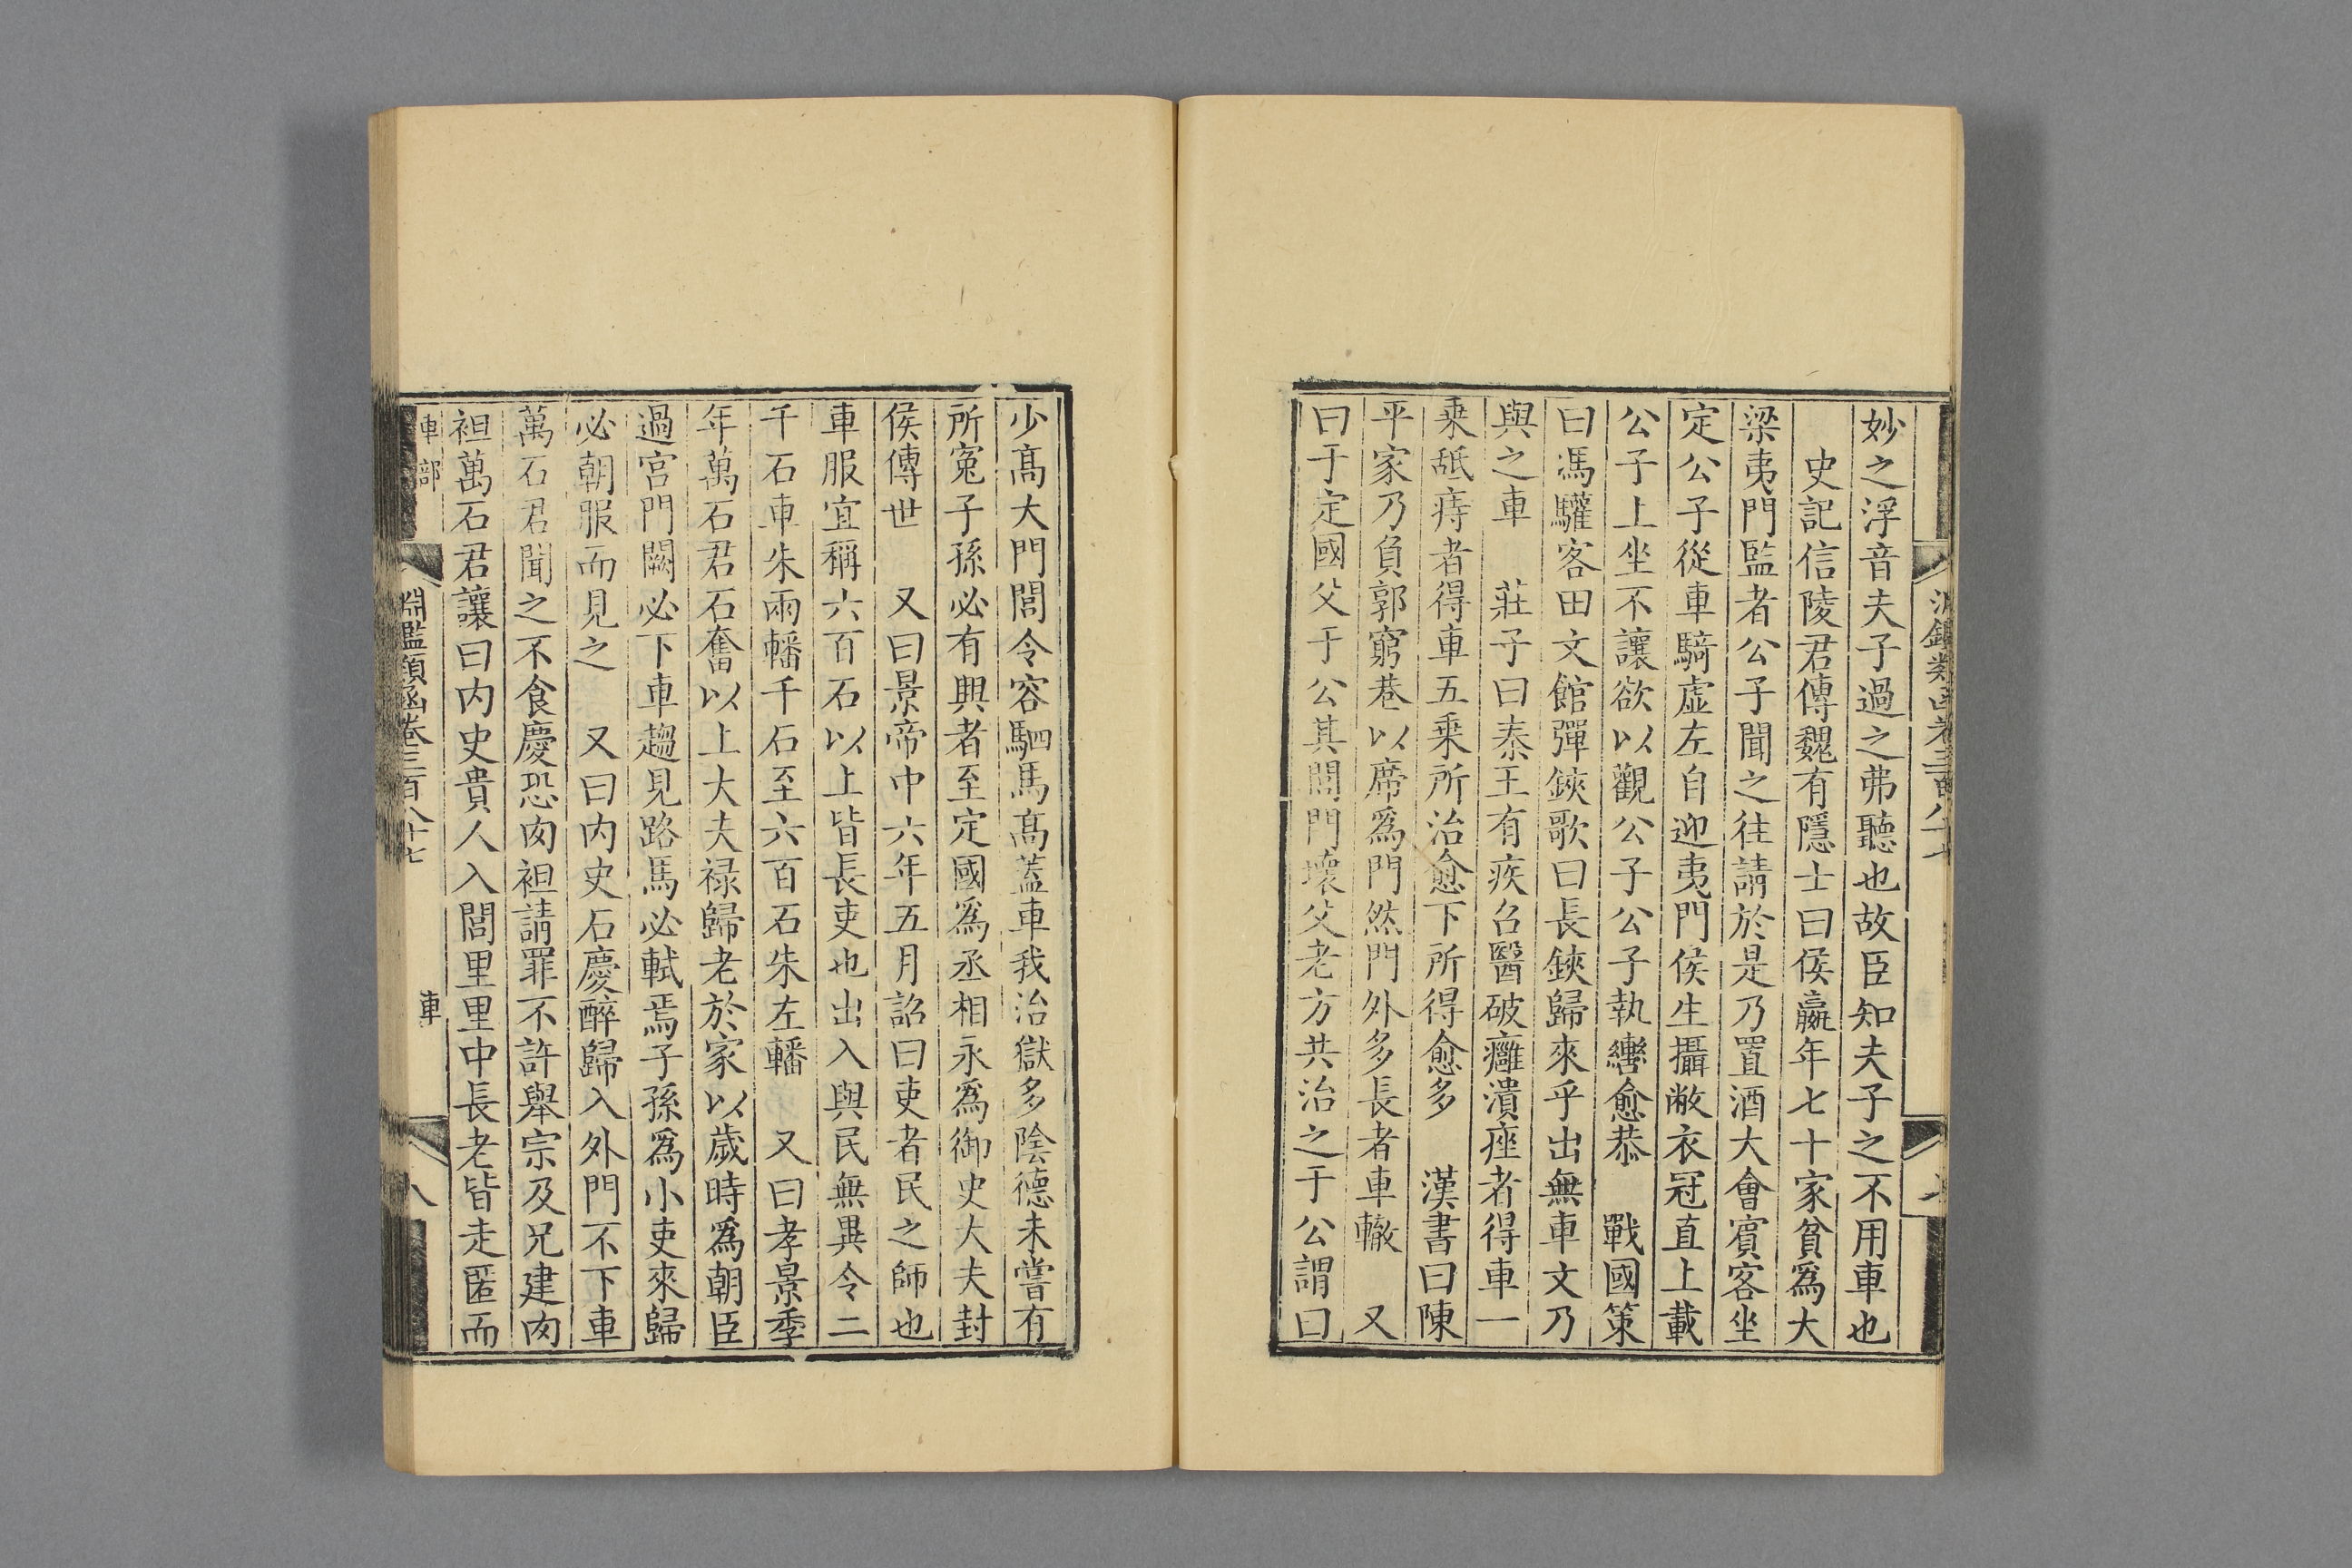 妙之浮音夫子過之弗聽也故臣知夫子之不用車也
史記信陵君傳魏有隱士曰侯嬴年七十家貧爲大
梁夷門監者公子聞之往請於是乃置酒大會賓客坐
定公子從車騎虛左自迎夷門侯生攝敝衣冠直上載
公子上坐不讓欲以觀公子公子執轡愈恭　戰國策
曰馮驩客田文館彈鋏歌曰長鋏歸來乎出無車文乃
與之車　莊子曰秦王有疾召醫破癰潰痤者得車一
乗舐痔者得車五乗所治愈下所得愈多　漢書曰陳
平家乃負郭窮巷以席爲門然門外多長者車轍　又
曰于定國父于公其閭門壞父老方共治之于公謂曰
少髙大門閭令容駟馬髙蓋車我治獄多陰德未嘗有
所寃子孫必有興者至定國爲丞相永爲御史大夫封
侯傳世　又曰景帝中六年五月詔曰吏者民之師也
車服宜稱六百石以上皆長吏也出入與民無異令二
千石車朱兩轓千石至六百石朱左轓　又曰孝景季
年萬石君石奮以上大夫禄歸老於家以歲時爲朝臣
過宫門闕必下車趨見路馬必軾焉子孫爲小吏來歸
必朝服而見之　又曰内史石慶醉歸入外門不下車
萬石君聞之不食慶恐肉袒請罪不許舉宗及兄建肉
袒萬石君讓曰内史貴人入閭里里中長老皆走匿而
車部
淵鑑類函卷三百八十七
車
八